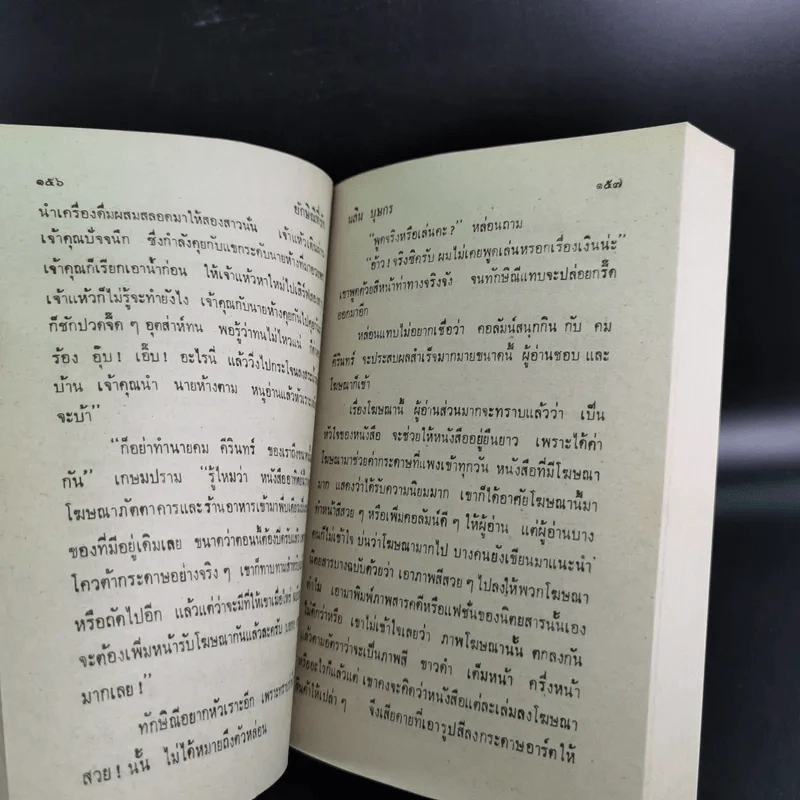 ๑๕๖
ยักษิณีที่รัก
นำเครื่องดื่มผสมสลอดมาให้สองสาวนั่น เจ้าแห้วเดินผ่าน
เจ้าคุณปัจจนึก ซึ่งกำลังคุยกับแขกระดับนายห้าง
เจ้าคุณก็เรียกเอาน้ำก่อน ให้เจ้าแห้วหาใหม่ไปเสิร์ฟสองสาว
เจ้าแห้วก็ไม่รู้จะทำยังไง เจ้าคุณกับนายห้างคุยกันไป
ก็ชักปวดจี๊ด ๆ อุตส่าห์ทน พอรู้ว่าทนไม่ไหวแน่
ร้อง อุ๊บ! เอิ๊บ! อะไรนี่ แล้ววิ่งไปกระโจนลงสระน้ำ
บ้าน เจ้าคุณนำ นายห้างตาม หนูอ่านแล้วหัวเราะ
จะบ้า”
“ก็อย่าทำนายคม คีรินทร์ ของเราถึงขนาดนั้น
กัน” เกษมปราม “รู้ไหมว่า หนังสืออาทิตย์นี้
โฆษณาภัตตาคารและร้านอาหารเข้ามาพึ่บเดียว
ของที่มีอยู่เดิมเลย ขนาดว่าตอนนี้ต้องบีดรับแล้ว
โควต้ากระดาษอย่างจริง ๆ เขาก็ทาบทามสำหรับ
หรือถัดไปอีก แล้วแต่ว่าจะมีที่ให้เขาเมื่อไหร่
จะต้องเพิ่มหน้ารับโฆษณากันแล้วละครับ
มากเลย!”
ทักษิณีอยากหัวเราะอีก เพราะทราบ
สวย! นั้น ไม่ได้หมายถึงตัวหล่อน
นลิน บุษกร
๑๕๗
“พูดจริงหรือเล่นคะ?” หล่อนถาม
“อ้าว! จริงซิครับ ผมไม่เคยพูดเล่นหรอกเรื่องเงินน่ะ”
เขาพูดด้วยสีหน้าท่าทางจริงจัง จนทักษิณีแทบจะปล่อยกรี๊ด
ออกมาอีก
หล่อนแทบไม่อยากเชื่อว่า คอลัมน์สนุกกิน กับ คม
คีรินทร์ จะประสบผลสำเร็จมากมายขนาดนี้ ผู้อ่านชอบ และ
โฆษณาก็เข้า
เรื่องโฆษณานี้ ผู้อ่านส่วนมากจะทราบแล้วว่า เป็น
หัวใจของหนังสือ จะช่วยให้หนังสืออยู่ยืนยาว เพราะได้ค่า
โฆษณามาช่วยค่ากระดาษที่แพงเข้าทุกวัน หนังสือที่มีโฆษณา
มาก แสดงว่าได้รับความนิยมมาก เขาก็ได้อาศัยโฆษณานี้มา
ทำหน้าสีสวย ๆ หรือเพิ่มคอลัมน์ดี ๆ ให้ผู้อ่าน แต่ผู้อ่านบาง
คนก็ไม่เข้าใจ บ่นว่าโฆษณามากไป บางคนยังเขียนมาแนะนำ
นิตยสารบางฉบับด้วยว่า เอาภาพสีสวย ๆ ไปลงให้พวกโฆษณา
ทำไม เอามาพิมพ์ภาพสารคดีหรือแฟชั่นของนิตยสารนั้นเอง
ไม่ดีกว่าหรือ เขาไม่เข้าใจเลยว่า ภาพโฆษณานั้น ตกลงกัน
แล้วตามอัตราว่าจะเป็นภาพสี ขาวดำ เต็มหน้า ครึ่งหน้า
หรืออะไรก็แล้วแต่ เขาคงจะคิดว่าหนังสือแต่ละเล่มลงโฆษณา
สินค้าให้เปล่า ๆ จึงเสียดายที่เอารูปสีลงกระดาษอาร์ตให้